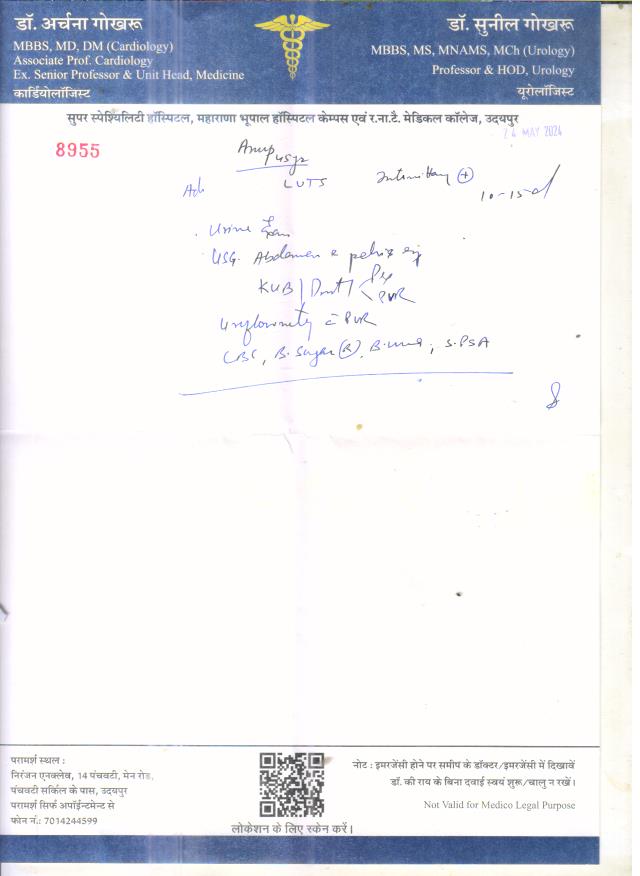 डॉ. अर्चना गोखरू
MBBS, MD, DM (Cardiology)
Associate Prof. Cardiology
Ex. Senior Professor & Unit Head, Medicine
कार्डियोलॉजिस्ट
डॉ. सुनील गोखरू
MBBS, MS, MNAMS, MCh (Urology)
Professor & HOD, Urology
यूरोलॉजिस्ट
सुपर स्पेश्यिलिटी हॉस्पिटल, महाराणा भूपाल हॉस्पिटल केम्पस एवं र.ना.टै. मेडिकल कॉलेज, उदयपुर
24 MAY 2024
8955
Anup 45yr
LUTS
10-15d
Urine
USG Abdomen & pelvis
KUB / PVR
Uroflowmetry c̄ PVR
CBC, B. Sugar (R), B. urea, S. PSA
परामर्श स्थल :
निरंजन एनक्लेव, 14 पंचवटी, मेन रोड,
पंचवटी सर्किल के पास, उदयपुर
परामर्श सिर्फ अपॉईन्टमेन्ट से
फोन नं.: 7014244599
लोकेशन के लिए स्केन करें।
नोट : इमरजेंसी होने पर समीप के डॉक्टर/इमरजेंसी में दिखावें
डॉ. की राय के बिना दवाई स्वयं शुरू/चालु न रखें।
Not Valid for Medico Legal Purpose